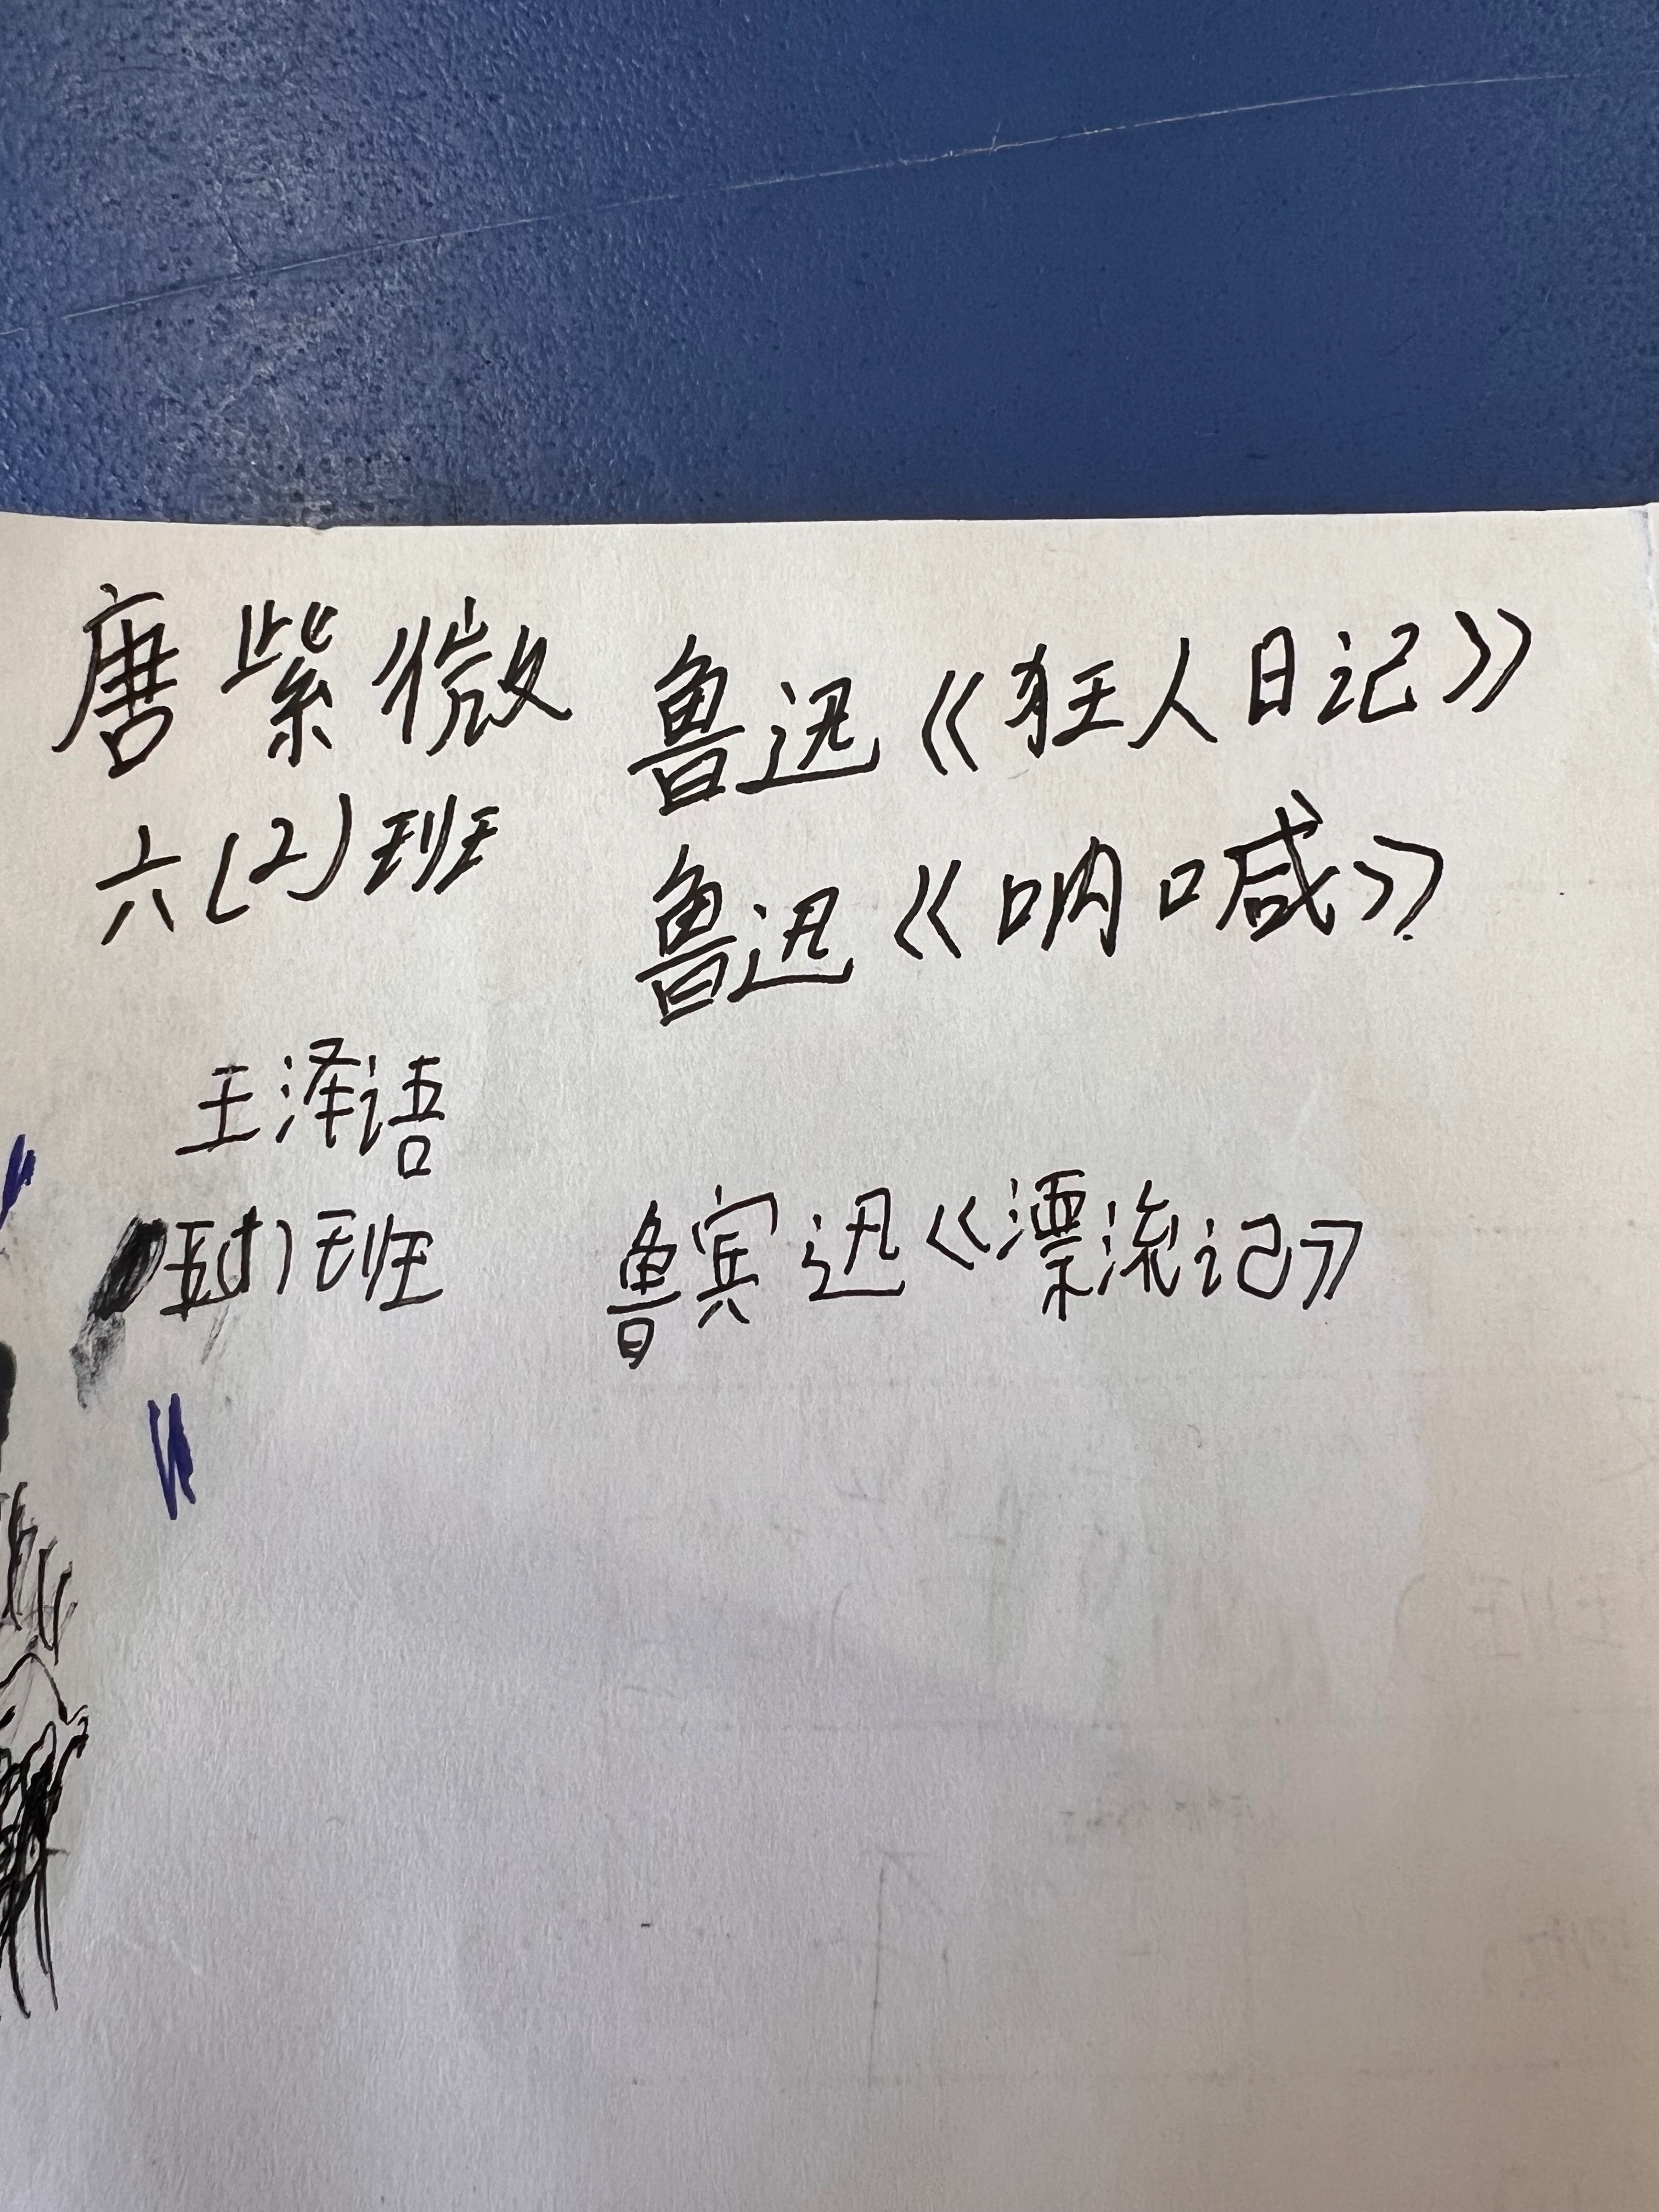 唐紫微 鲁迅《狂人日记》
六(2)班 鲁迅《呐喊》
王泽语
班 鲁宾迅《漂流记》